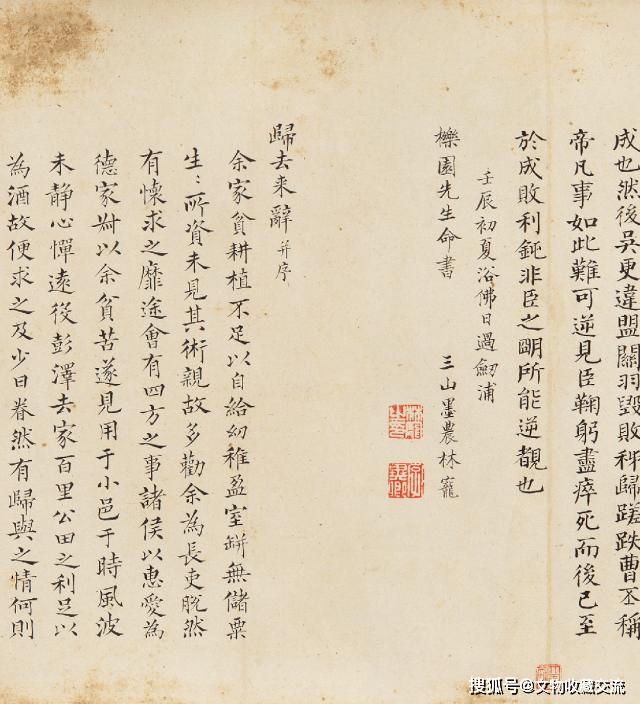 成也然後吳更違盟關羽毀敗秭歸蹉跌曹丕稱
帝凡事如此難可逆見臣鞠躬盡瘁死而後已至
於成敗利鈍非臣之明所能逆覩也
壬辰初夏浴佛日過劒浦
櫟園先生命書 三山墨農林寵
歸去來辭 并序
余家貧耕植不足以自給幼稚盈室缾無儲粟
生〻所資未見其術親故多勸余為長吏脫然
有懷求之靡途會有四方之事諸侯以惠愛為
德家叔以余貧苦遂見用于小邑于時風波
未靜心憚遠役彭澤去家百里公田之利足以
為酒故便求之及少日眷然有歸與之情何則
搜狐号@文物收藏交流